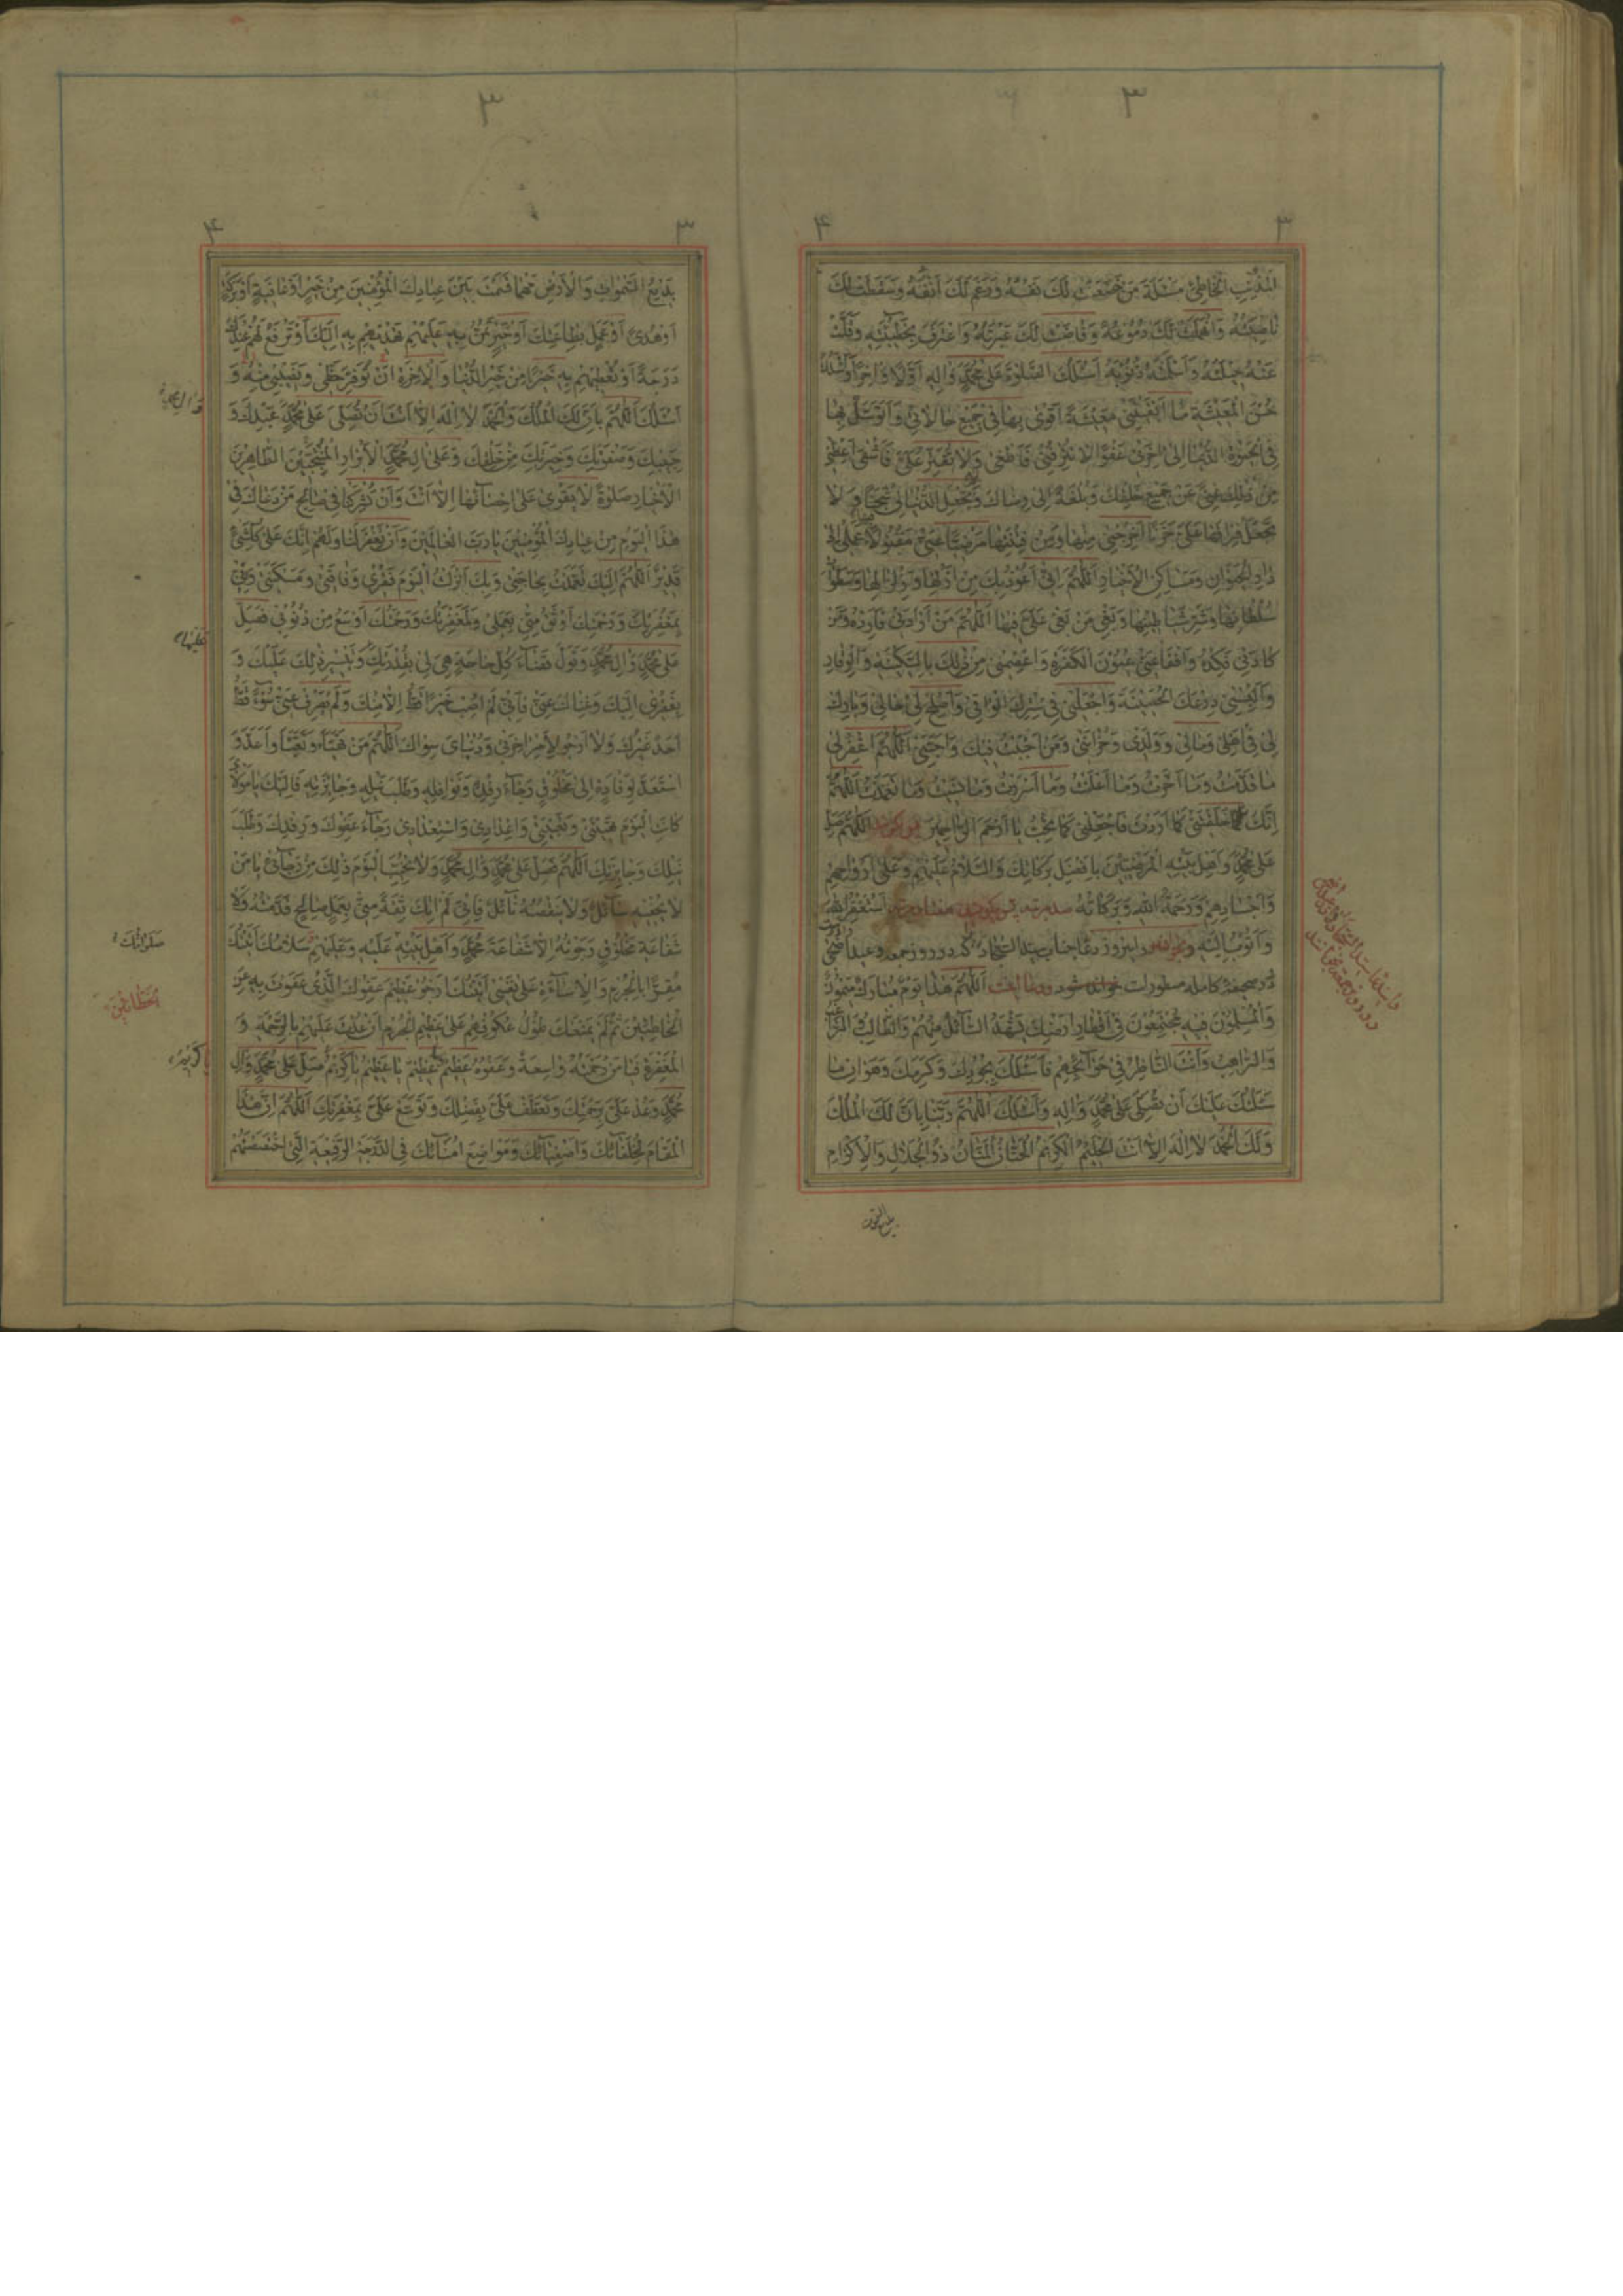 ۳
۳ ۴
المذنب الخاطئ مسئلة من خضعت لك نفسه ورغم لك انفه وسقطت لك
ناصيته وانهملت لك دموعه وفاضت لك عبرته واعترف بخطيئته وقلت
عنه حيلته واسلمته ذنوبه اسئلك الصلوة على محمد واله اولا واخرا واسئلك
حسن المعيشة ما ابقيتني معيشة اقوى بها في جميع حالاتي واتوسل بها
في الحيوة الدنيا الى اخرتي عفوا لا تترفني فاطغى ولا تقتر علي فاشقى اعطني
من ذلك غنى عن جميع خلقك وبلغة الى رضاك ولا تجعل الدنيا لي سجنا ولا
تجعل فراقها علي حزنا اخرجني منها ومن فتنتها مرضيا عني مقبولا فيها عملي الى
دار الحيوان ومساكن الاخيار اللهم اني اعوذ بك من ازلها وزلزالها وسطوات
سلطانها وشر شياطينها وبغي من بغى علي فيها اللهم من ارادني فارده ومن
كادني فكده وافقأ عني عيون الكفرة واعصمني من ذلك بالسكينة والوقار
والبسني درعك الحصينة واجعلني في سترك الواقي واصلح لي حالي وبارك
لي في اهلي ومالي وولدي وحزانتي ومن احببت فيك واحبني اللهم اغفر لي
ما قدمت وما اخرت وما اعلنت وما اسررت وما نسيت وما تعمدت اللهم
انك خلقتني كما اردت فاجعلني كما تحب يا ارحم الراحمين پس بگويد اللهم صل
على محمد واهل بيته المرضيين بافضل بركاتك والسلام عليهم وعلى ارواحهم
واجسادهم ورحمة الله وبركاته استغفر الله
واتوب اليه دعا جناب سيد السجاد كه در روز جمعه وعيد اضحى
در صحيفه كامله مسطورات خوانده شود اللهم هذا يوم مبارك ميمون
والمسلمون فيه مجتمعون في اقطار ارضك يشهد السائل منهم والطالب والراغب
والراهب وانت الناظر في حوائجهم فاسئلك بجودك وكرمك وهوان ما
سئلتك عليك ان تصلي على محمد واله واسئلك اللهم ربنا بان لك الملك
ولك الحمد لا اله الا انت الحليم الكريم الحنان المنان ذو الجلال والاكرام
۳
۳ ۴
بديع السموات والارض مهما قسمت بين عبادك المؤمنين من خير او عافية او بركة
او هدى او عمل بطاعتك او خير تمن به عليهم تهديهم به اليك او ترفع لهم عندك
درجة او تعطيهم به خيرا من خير الدنيا والاخرة ان توفر حظي ونصيبي منه و
اسئلك اللهم بان لك الملك والحمد لا اله الا انت ان تصلي على محمد عبدك و
حبيبك وصفوتك وخيرتك من خلقك وعلى ال محمد الابرار المنتجبين الطاهرين
الاخيار صلوة لا يقوى على احصائها الا انت وان تشركنا في صالح من دعاك في
هذا اليوم من عبادك المؤمنين يا رب العالمين وان تغفر لنا ولهم انك على كل شئ
قدير اللهم اليك تعمدت بحاجتي وبك انزلت اليوم فقري وفاقتي ومسكنتي واني
بمغفرتك ورحمتك اوثق مني بعملي ولمغفرتك ورحمتك اوسع من ذنوبي فصل
على محمد وال محمد وتول قضاء كل حاجة هي لي بقدرتك وتيسير ذلك عليك و
بفقري اليك وغناك عني فاني لم اصب خيرا قط الا منك ولم يصرف عني سوء قط
احد غيرك ولا ارجو لامر اخرتي ودنياي سواك اللهم من تهيأ وتعبأ واعد و
استعد لوفادة الى مخلوق رجاء رفده ونوافله وطلب نيله وجايزته فاليك يا مولاي
كانت اليوم تهيئتي وتعبيتي واعدادي واستعدادي رجاء عفوك ورفدك وطلب
نيلك وجايزتك اللهم فصل على محمد وال محمد ولا تخيب اليوم ذلك من رجائي يا من
لا يحفيه سائل ولا ينقصه نائل فاني لم اتك ثقة مني بعمل صالح قدمته ولا
شفاعة مخلوق رجوته الا شفاعة محمد واهل بيته عليه وعليهم سلامك اتيتك
مقرا بالجرم والاساءة على نفسي اتيتك ارجو عظيم عفوك الذي عفوت به عن
الخاطئين ثم لم يمنعك طول عكوفهم على عظيم الجرم ان عدت عليهم بالرحمة و
المغفرة فيا من رحمته واسعة وعفوه عظيم يا عظيم يا عظيم يا كريم صل على محمد وال
محمد وعد علي برحمتك وتعطف علي بفضلك وتوسع علي بمغفرتك اللهم ان هذا
المقام لخلفائك واصفيائك ومواضع امنائك في الدرجة الرفيعة التي اختصصتهم
وال محمد
عليهما
صلواتك
الخطائين
يا كريم